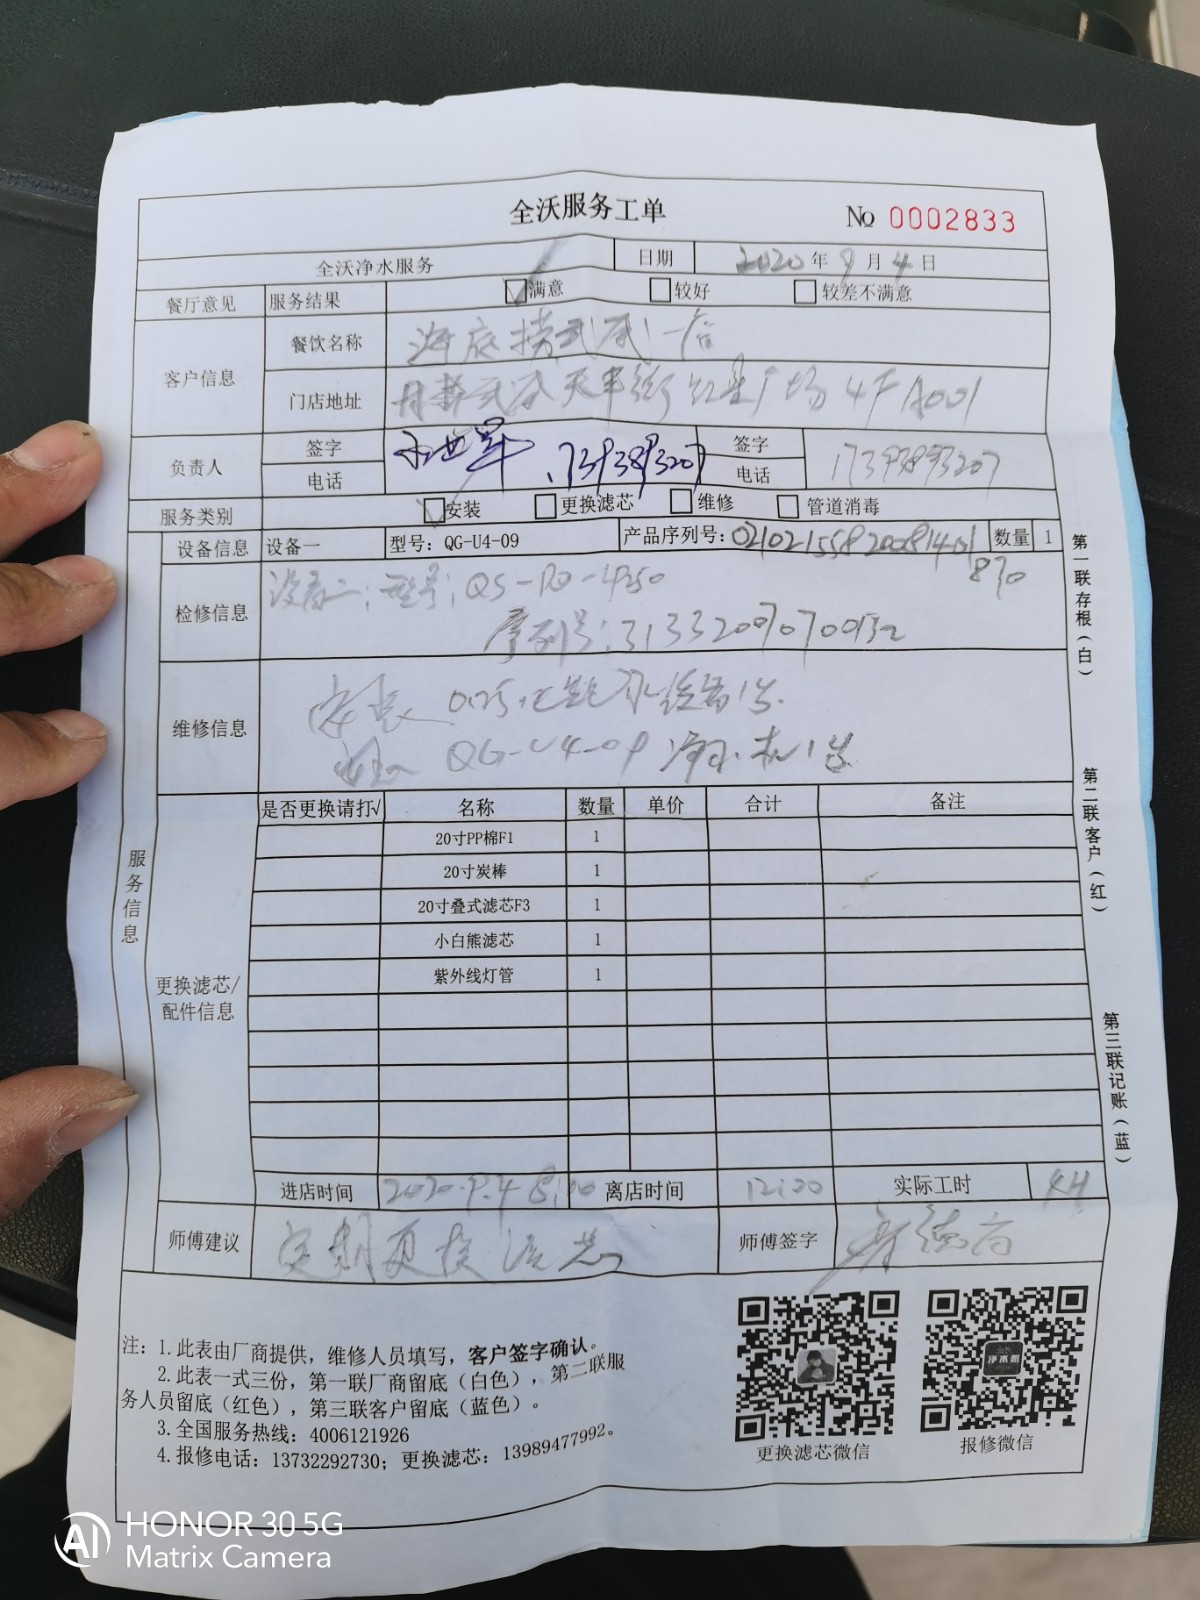 全沃服务工单
No 0002833
全沃净水服务 日期 2020年9月4日
餐厅意见 服务结果 满意 较好 较差不满意
客户信息 餐饮名称 海底捞
门店地址 天 街 广场4F A001
负责人 签字 签字
电话 17393893207 电话 17393893207
服务类别 安装 更换滤芯 维修 管道消毒
设备信息 设备一 型号：QG-U4-09 产品序列号： 数量 1
870
检修信息 设备二：型号：
序列号：
维修信息 安装 设备1台
安装 QG-U4-09 净水机1台
服务信息
是否更换请打√ 名称 数量 单价 合计 备注
20寸PP棉F1 1
20寸炭棒 1
20寸叠式滤芯F3 1
小白熊滤芯 1
紫外线灯管 1
更换滤芯/
配件信息
进店时间 2020.9.4 8:00 离店时间 12:00 实际工时 4H
师傅建议 定期更换滤芯 师傅签字
第一联存根（白）
第二联客户（红）
第三联记账（蓝）
注：1.此表由厂商提供，维修人员填写，客户签字确认。
2.此表一式三份，第一联厂商留底（白色），第二联服
务人员留底（红色），第三联客户留底（蓝色）。
3.全国服务热线：4006121926
4.报修电话：13732292730；更换滤芯：13989477992。
净水机
更换滤芯微信 报修微信
AI HONOR 30 5G
Matrix Camera